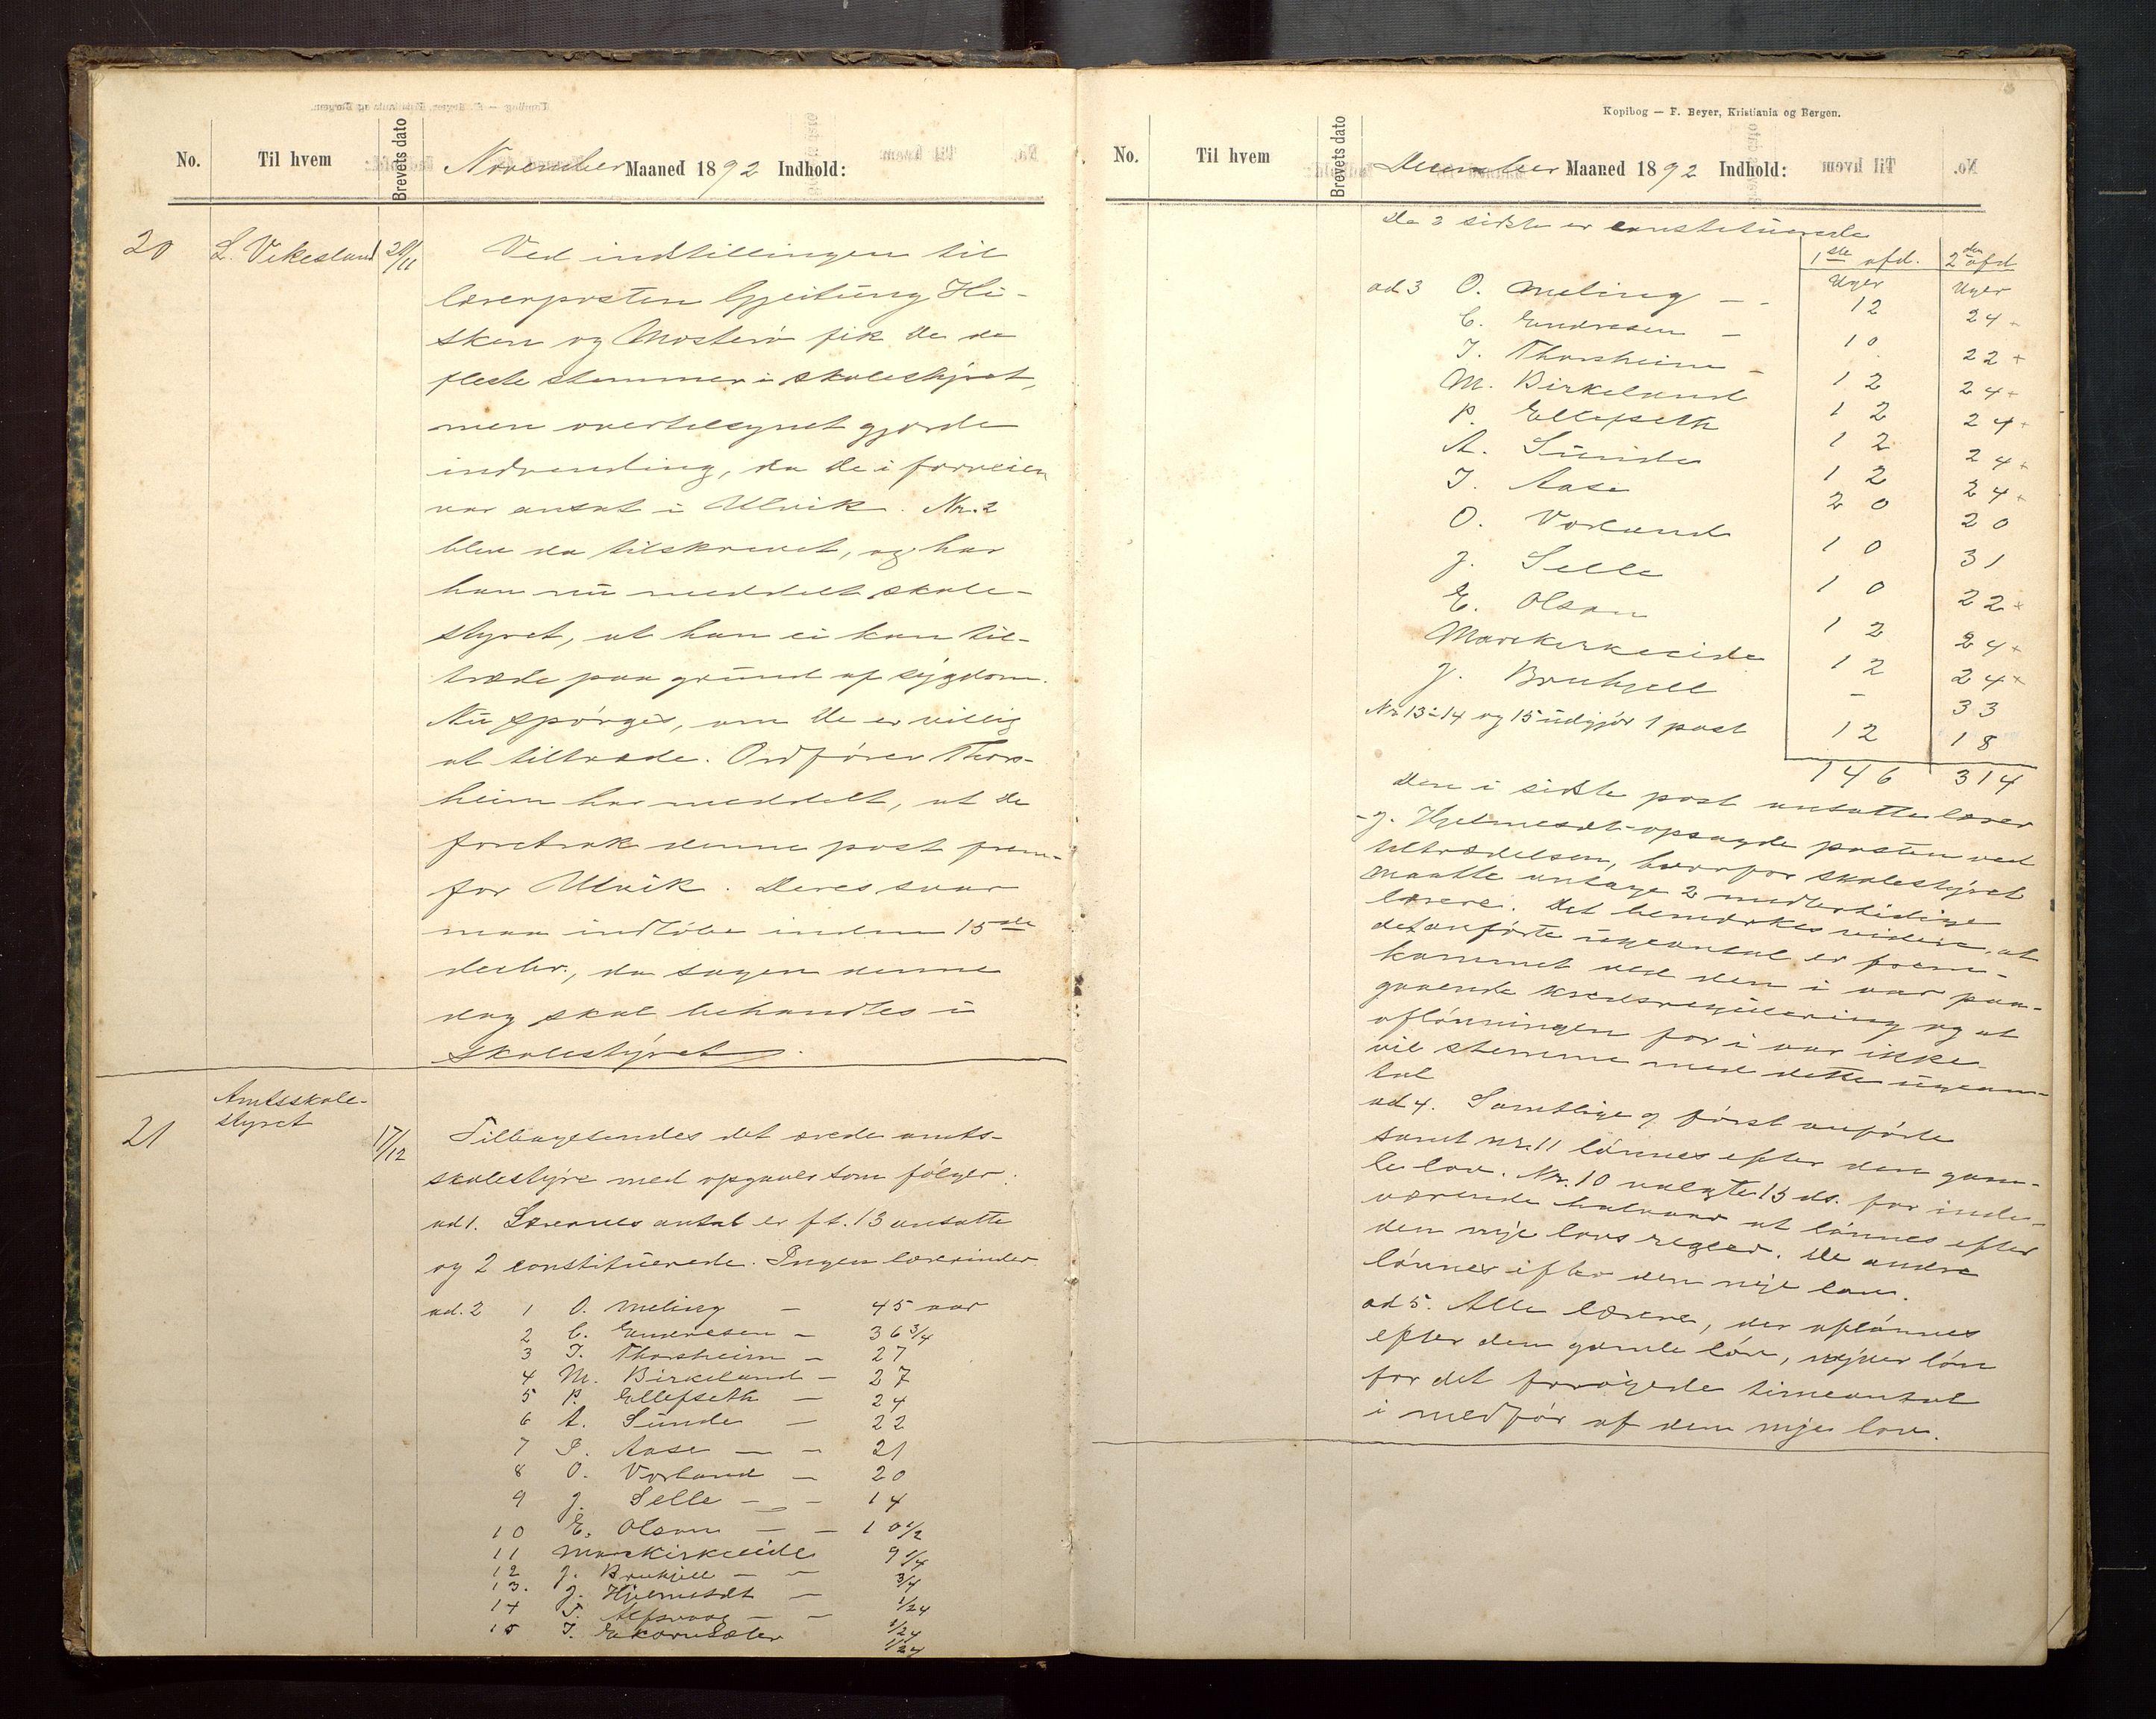 No. Til hvem Brevets dato November Maaned 1892 Indhold:
20 L. Vikesland 28/11 Ved indstillingen til
lærerposten Gjeitung Hi-
sken og Mosterø fik De de
fleste stemmer i skolestyret,
men overtilsynet gjorde
indvending, da De i forveien
var ansat i Ulvik. Nr. 2
blev da tilskrevet, og har
han nu meddelt skole-
styret, at han ei kan til-
træde paa grund af sygdom.
Nu spørges, om De er villig
at tiltræde. Ordfører Thors-
heim har meddelt, at De
foretrak denne post frem-
for Ulvik. Deres svar
maa indløbe inden 15de
decbr., da sagen denne
dag skal behandles i
skolestyret.
21 Amtsskole-
styret 17/12 Tilbagesendes det ærede amts-
skolestyre med opgaver som følger:
ad 1. Lærernes antal er ft. 13 ansatte
og 2 constituerede. Ingen lærerinder
ad. 2 1 O. Meling – 45 aar
2 C. Endresen – 36 3/4
3 T. Thorsheim – 27
4 M. Birkeland – 27
5 P. Ellefseth – 24
6 A. Sunde – 22
7 I. Aase – – 21
8 O. Vorland – 20
9 J. Selle – – 14
10 E. Olson – – 10 1/2
11 Markirkeeide 9 1/4
12 J. Bruhjell – – 3/4
13. J. Hjelmesæt – 1/24
14 T. Alfsvaag – – 1/24
15 T. Ekornsæter 1/24
Kopibog — F. Beyer, Kristiania og Bergen.
No. Til hvem Brevets dato December Maaned 1892 Indhold:
De 2 sidste er constituerede
1ste afd. 2den afd
Uger Uger
ad 3 O. Meling – - 12 24 +
C. Endresen – 10 22 +
T. Thorsheim – 12 24 +
M. Birkeland 12 24 +
P. Ellefseth 12 24 +
A. Sunde 12 24 +
I. Aase 20 20
O. Vorland 10 31
J. Selle 10 22 +
E. Olson 12 24 +
Markirkeeide 12 24 +
J. Bruhjell – 33
Nr. 13 - 14 og 15 udgjør 1 post 12 18
146 314
Den i sidste post ansatte lærer
- J. Hjelmesæt - opsagde posten ved
tiltrædelsen, hvorfor skolestyret
maatte antage 2 midlertidige
lærere. Det bemærkes videre, at
det anførte ugeantal er frem-
kommet ved den i aar paa-
gaaende kredsregulering og at
aflønningen for i aar ikke
vil stemme med dette ugean-
tal
ad 4. Samtlige 9 først anførte
samt nr. 11 lønnes efter den gam-
le lov. Nr. 10 valgte 15 ds. for inde-
værende halvaar at lønnes efter
den nye lovs regler. De andre
lønnes efter den nye lov.
ad 5. Alle lærere, der aflønnes
efter den gamle lov, nyder løn
for det forøgede timeantal
i medfør af den nye lov.